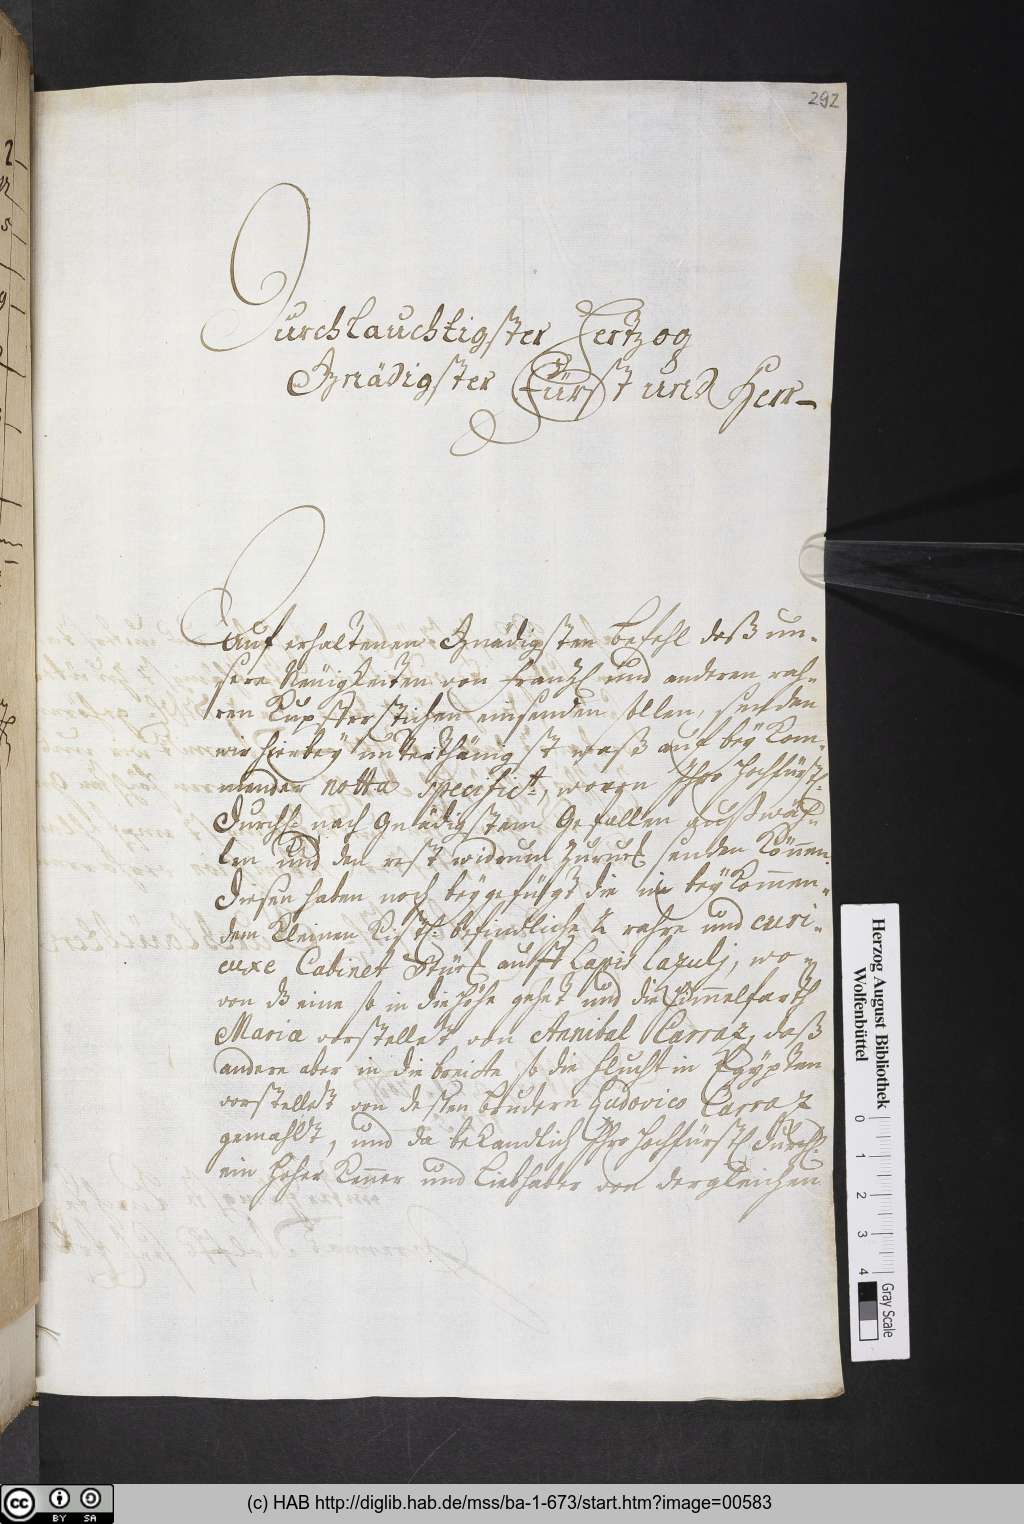 292
Durchlauchtigster Hertzog
Gnädigster Fürst und Herr
Auf erhaltenen Gnädigsten befehl daß un-
sere Neüigkeiten von Frantz: und anderen rah-
ren Kupfferstichen einsenden sollen, senden
wir hierbeÿ unterthänigst waß auf beÿ kom-
mender notta specifict, woran Ihro Hochfürstl:
Durchl: nach Gnädigstem Gefallen außwäh-
len und den rest widrum zuruck senden können.
Diesen haben noch beÿgefügt die in beÿkommen-
dem Kleinen Kistl: befindliche 2 rahre und curi-
euxe Cabinet Stück auff Lapis lazulj, wo-
von dz eine so in die höhe gehet und die Himmelfarth
Mariæ vorstellet von Annibal Carraz, daß
andere aber in die breite so die flucht in Egÿpten
vorstellet von dessen brudern Ludovico Carraz
gemahlt, und da bekandlich Ihro Hochfürstl Durchl:
ein Hoher Kenner und Liebhaber von dergleichen
Herzog August Bibliothek
Wolfenbüttel
0 1 2 3 4
Gray Scale
cc BY SA
(c) HAB http://diglib.hab.de/mss/ba-1-673/start.htm?image=00583